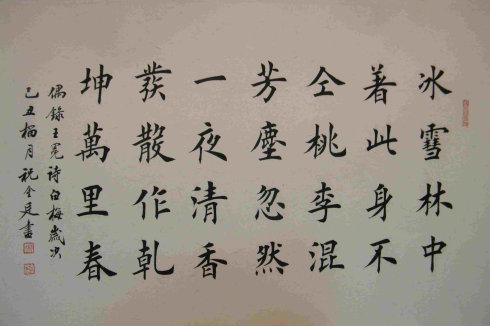 冰雪林中
著此身不
仝桃李混
芳塵忽然
一夜清香
發散作乾
坤萬里春
偶錄王冕詩白梅歲次
己丑梅月祝書